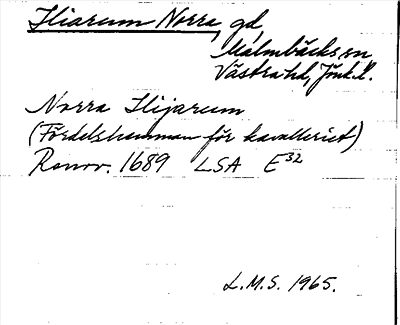 Iliarum Norra, gd
Malmbäcks sn
Västra hd, Jönk. l.
Norra Ilijarum
(Fördelshemman för kavalleriet)
Renov. 1689 LSA E32
L.M.S. 1965.